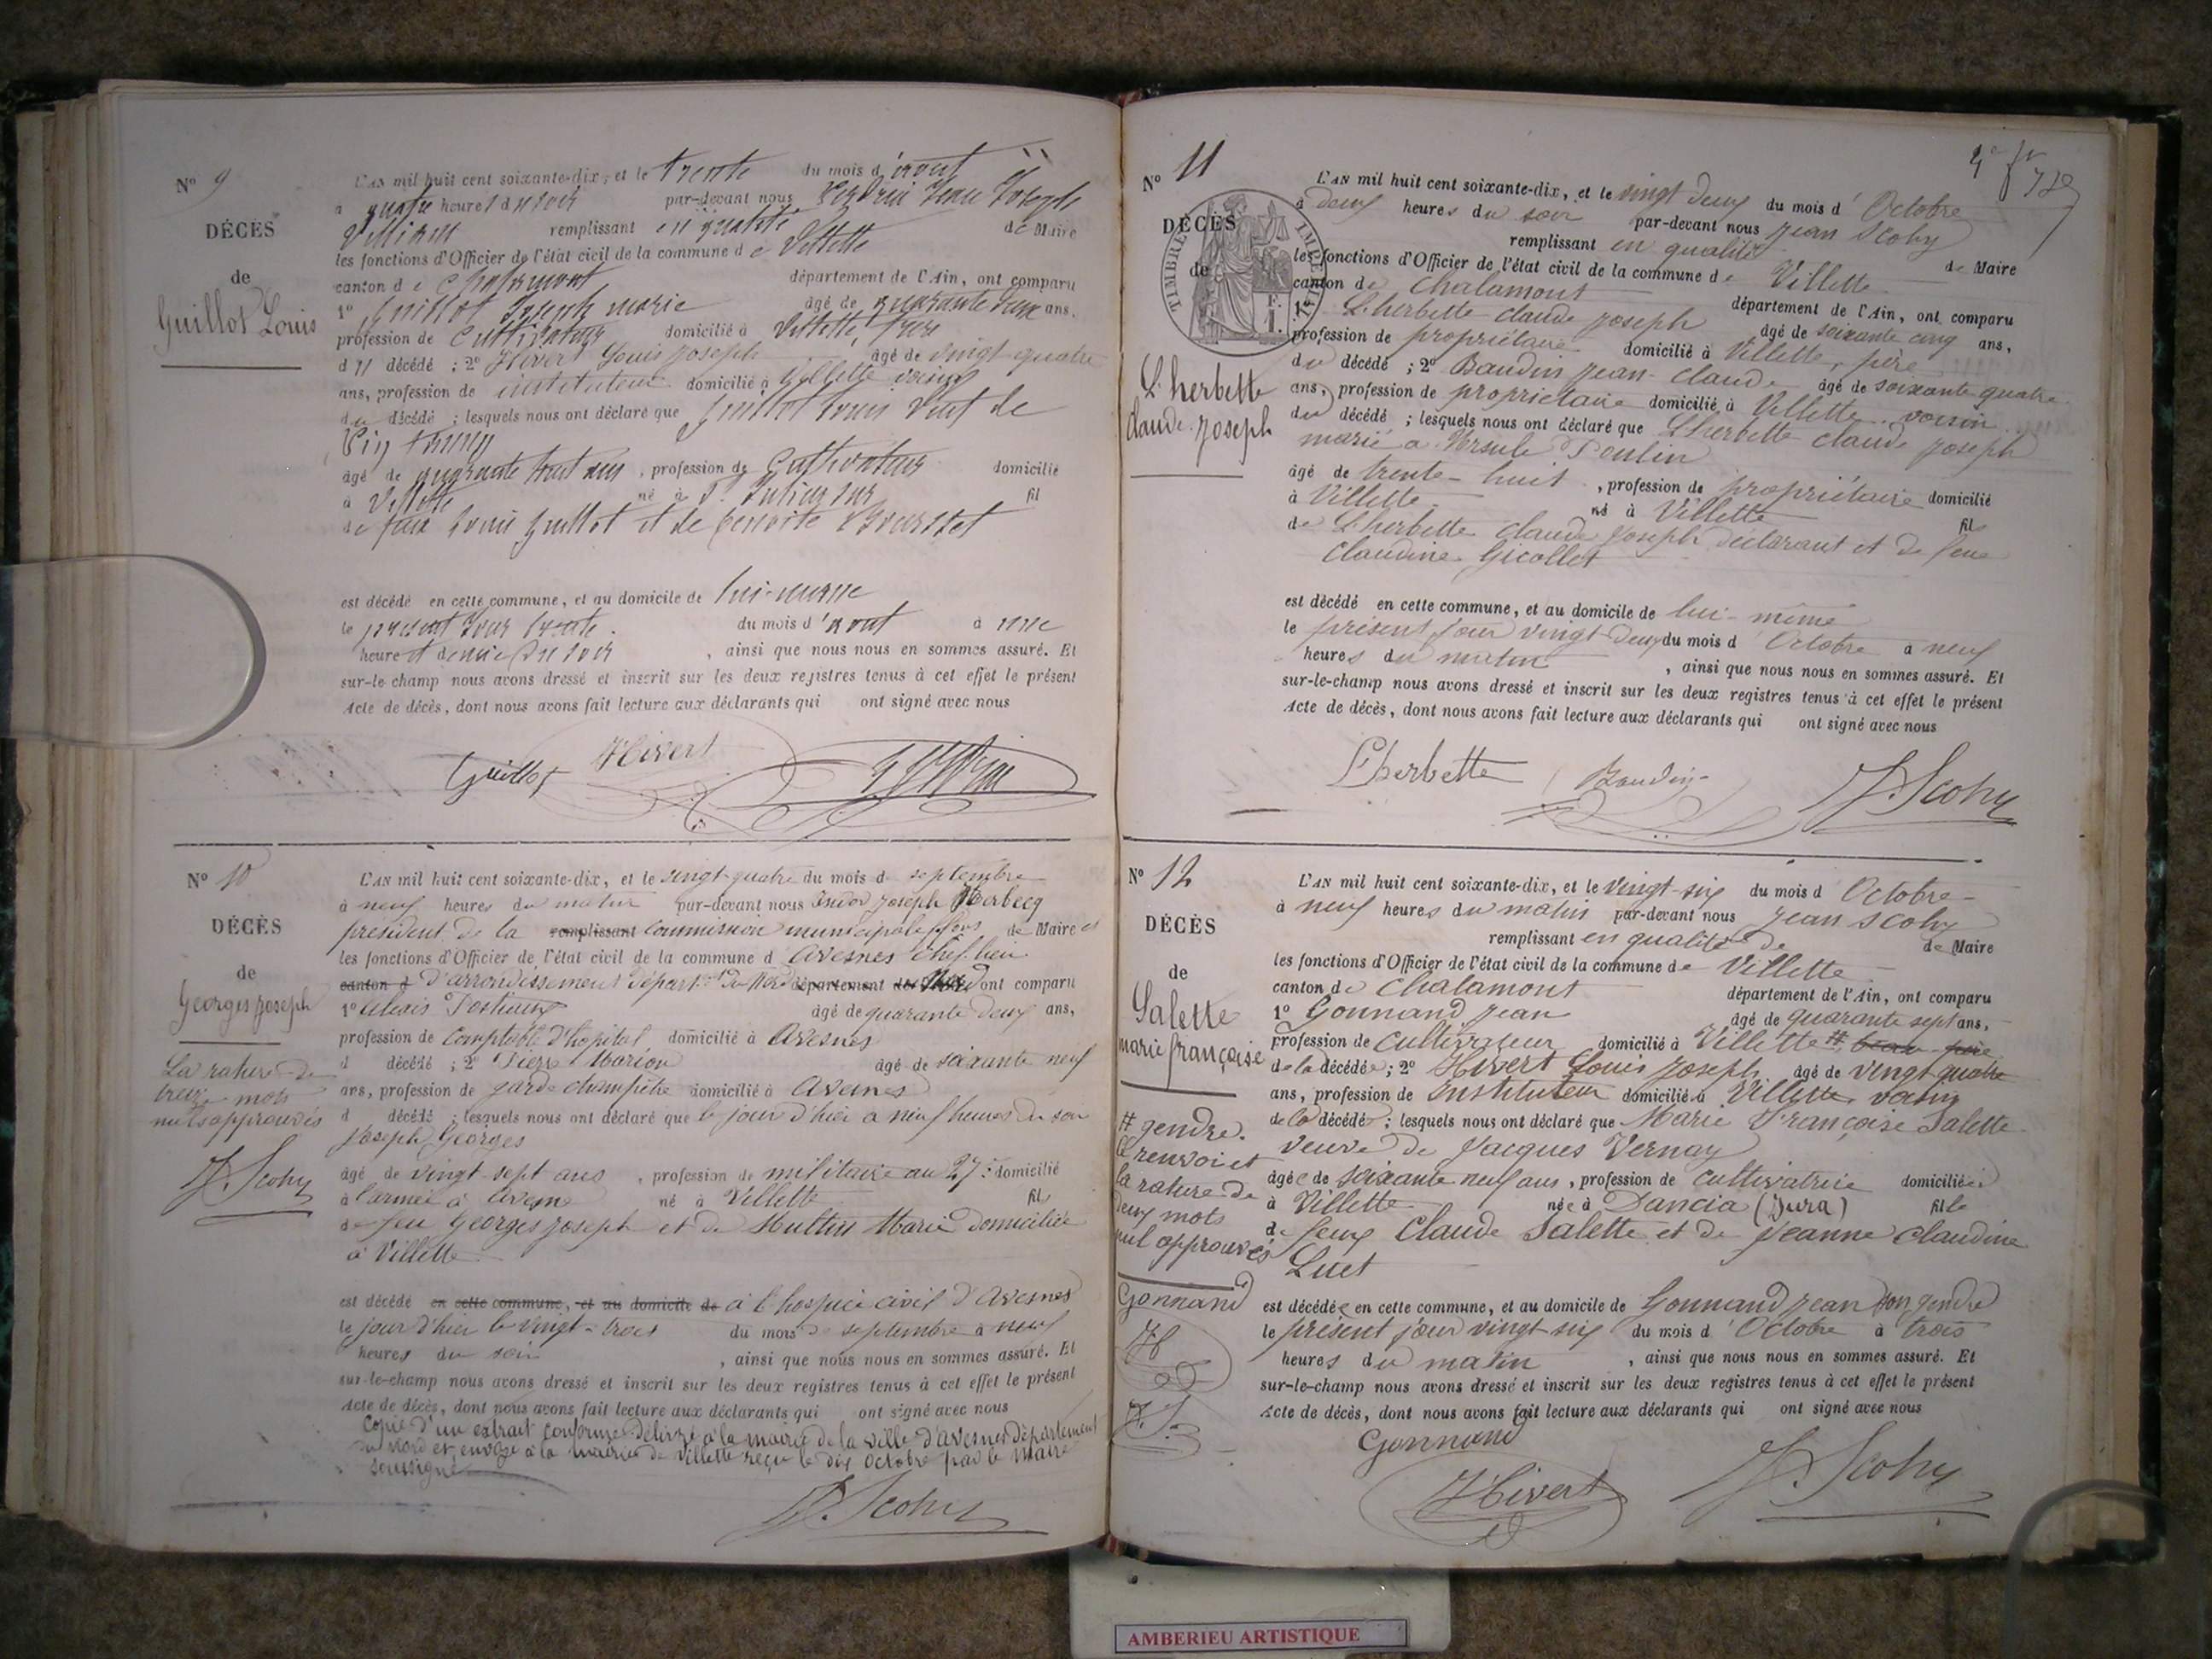 N° 9
DÉCÈS
de
Guillot Louis
L'AN mil huit cent soixante-dix, et le trente du mois d'août
à quatre heures du soir par-devant nous Jean Joseph
remplissant en qualité de Maire
les fonctions d'Officier de l'état civil de la commune de Villette
canton de Chalamont département de l'Ain, ont comparu
1° Guillot Joseph marie âgé de quarante ans,
profession de Cultivateur domicilié à Villette, frère
du décédé ; 2° Hivert Louis Joseph âgé de vingt quatre
ans, profession de instituteur domicilié à Villette voisin
du décédé ; lesquels nous ont déclaré que Guillot Louis veuf de
âgé de quarante huit ans, profession de Cultivateur domicilié
à Villette né à St Julien sur fil
de feux Louis Guillot et de benoite
est décédé en cette commune, et au domicile de lui-même
le présent jour trente du mois d'aout à une
heure et demie du soir, ainsi que nous nous en sommes assuré. Et
sur-le-champ nous avons dressé et inscrit sur les deux registres tenus à cet effet le présent
Acte de décès, dont nous avons fait lecture aux déclarants qui ont signé avec nous
Guillot Hivert
N° 10
DÉCÈS
de
Georges Joseph
La rature de
treize mots
nuls approuvés
J. Scohy
L'AN mil huit cent soixante-dix, et le vingt-quatre du mois de septembre
à neuf heures du matin par-devant nous Isidor Joseph Herbecq
président de la remplissant commission municipale de Maire et
les fonctions d'Officier de l'état civil de la commune d'Avesnes chef lieu
canton d d'arrondissement départt du Nord département ont comparu
1° Alexis Postiaux âgé de quarante deux ans,
profession de Comptable d'hopital domicilié à Avesnes
d décédé ; 2° Pierre Marion âgé de soixante neuf
ans, profession de garde champêtre domicilié à Avesnes
d décédé ; lesquels nous ont déclaré que le jour d'hier à neuf heures du soir
Joseph Georges
âgé de vingt sept ans, profession de militaire au 27e domicilié
à l'armée à Avesne né à Villette fils
de feu Georges Joseph et de Marie domiciliée
à Villette
est décédé en cette commune, et au domicile de à l'hospice civil d'Avesnes
le jour d'hier le vingt-trois du mois de septembre à neuf
heures du soir, ainsi que nous nous en sommes assuré. Et
sur-le-champ nous avons dressé et inscrit sur les deux registres tenus à cet effet le présent
Acte de décès, dont nous avons fait lecture aux déclarants qui ont signé avec nous
Copie d'un extrait conforme délivré à la mairie de la ville d'Avesnes département
du Nord et envoyé à la mairie de Villette reçu le dix octobre par le Maire
soussigné
J. Scohy
N° 11
DÉCÈS
de
TIMBRE IMPÉRIAL
Lherbette
claude Joseph
L'AN mil huit cent soixante-dix, et le vingt deux du mois d'Octobre
à deux heures du soir par-devant nous Jean Scohy
remplissant en qualité de Maire
les fonctions d'Officier de l'état civil de la commune de Villette
canton de Chalamont département de l'Ain, ont comparu
1° Lherbette claude joseph âgé de soixante cinq ans,
profession de propriétaire domicilié à Villette, père
du décédé ; 2° Baudin jean-claude âgé de soixante quatre
ans, profession de proprietaire domicilié à Villette voisin
du décédé ; lesquels nous ont déclaré que Lherbette claude joseph
marié a Ursule Poulin
âgé de trente-huit, profession de propriétaire domicilié
à Villette né à Villette fils
de Lherbette claude joseph déclarant et de feue
Claudine Gicollet
est décédé en cette commune, et au domicile de lui-même
le présent jour vingt deux du mois d'Octobre à neuf
heures du matin, ainsi que nous nous en sommes assuré. Et
sur-le-champ nous avons dressé et inscrit sur les deux registres tenus à cet effet le présent
Acte de décès, dont nous avons fait lecture aux déclarants qui ont signé avec nous
Lherbette Baudin J. Scohy
N° 12
DÉCÈS
de
Salette
marie françoise
# gendre.
le renvoi et
la rature de
deux mots
nul approuvés
Gonnand
JH
J.S.
L'AN mil huit cent soixante-dix, et le vingt-six du mois d'Octobre
à neuf heures du matin par-devant nous Jean Scohy
remplissant en qualité de de Maire
les fonctions d'Officier de l'état civil de la commune de Villette
canton de Chalamont département de l'Ain, ont comparu
1° Gonnand jean âgé de quarante sept ans,
profession de cultivateur domicilié à Villette # beau-père
de la décédée ; 2° Hivert Louis Joseph âgé de vingt quatre
ans, profession de Instituteur domicilié à Villette voisin
de la décédée ; lesquels nous ont déclaré que Marie Françoise Salette
veuve de Jacques Vernay
âgée de soixante neuf ans, profession de cultivatrice domiciliée
à Villette née à Dancia (Jura) fille
de feux Claude Salette et de Jeanne claudine
Luet
est décédée en cette commune, et au domicile de Gonnand jean son gendre
le présent jour vingt six du mois d'Octobre à trois
heures du matin, ainsi que nous nous en sommes assuré. Et
sur-le-champ nous avons dressé et inscrit sur les deux registres tenus à cet effet le présent
Acte de décès, dont nous avons fait lecture aux déclarants qui ont signé avec nous
Gonnand
Hivert J. Scohy
AMBERIEU ARTISTIQUE